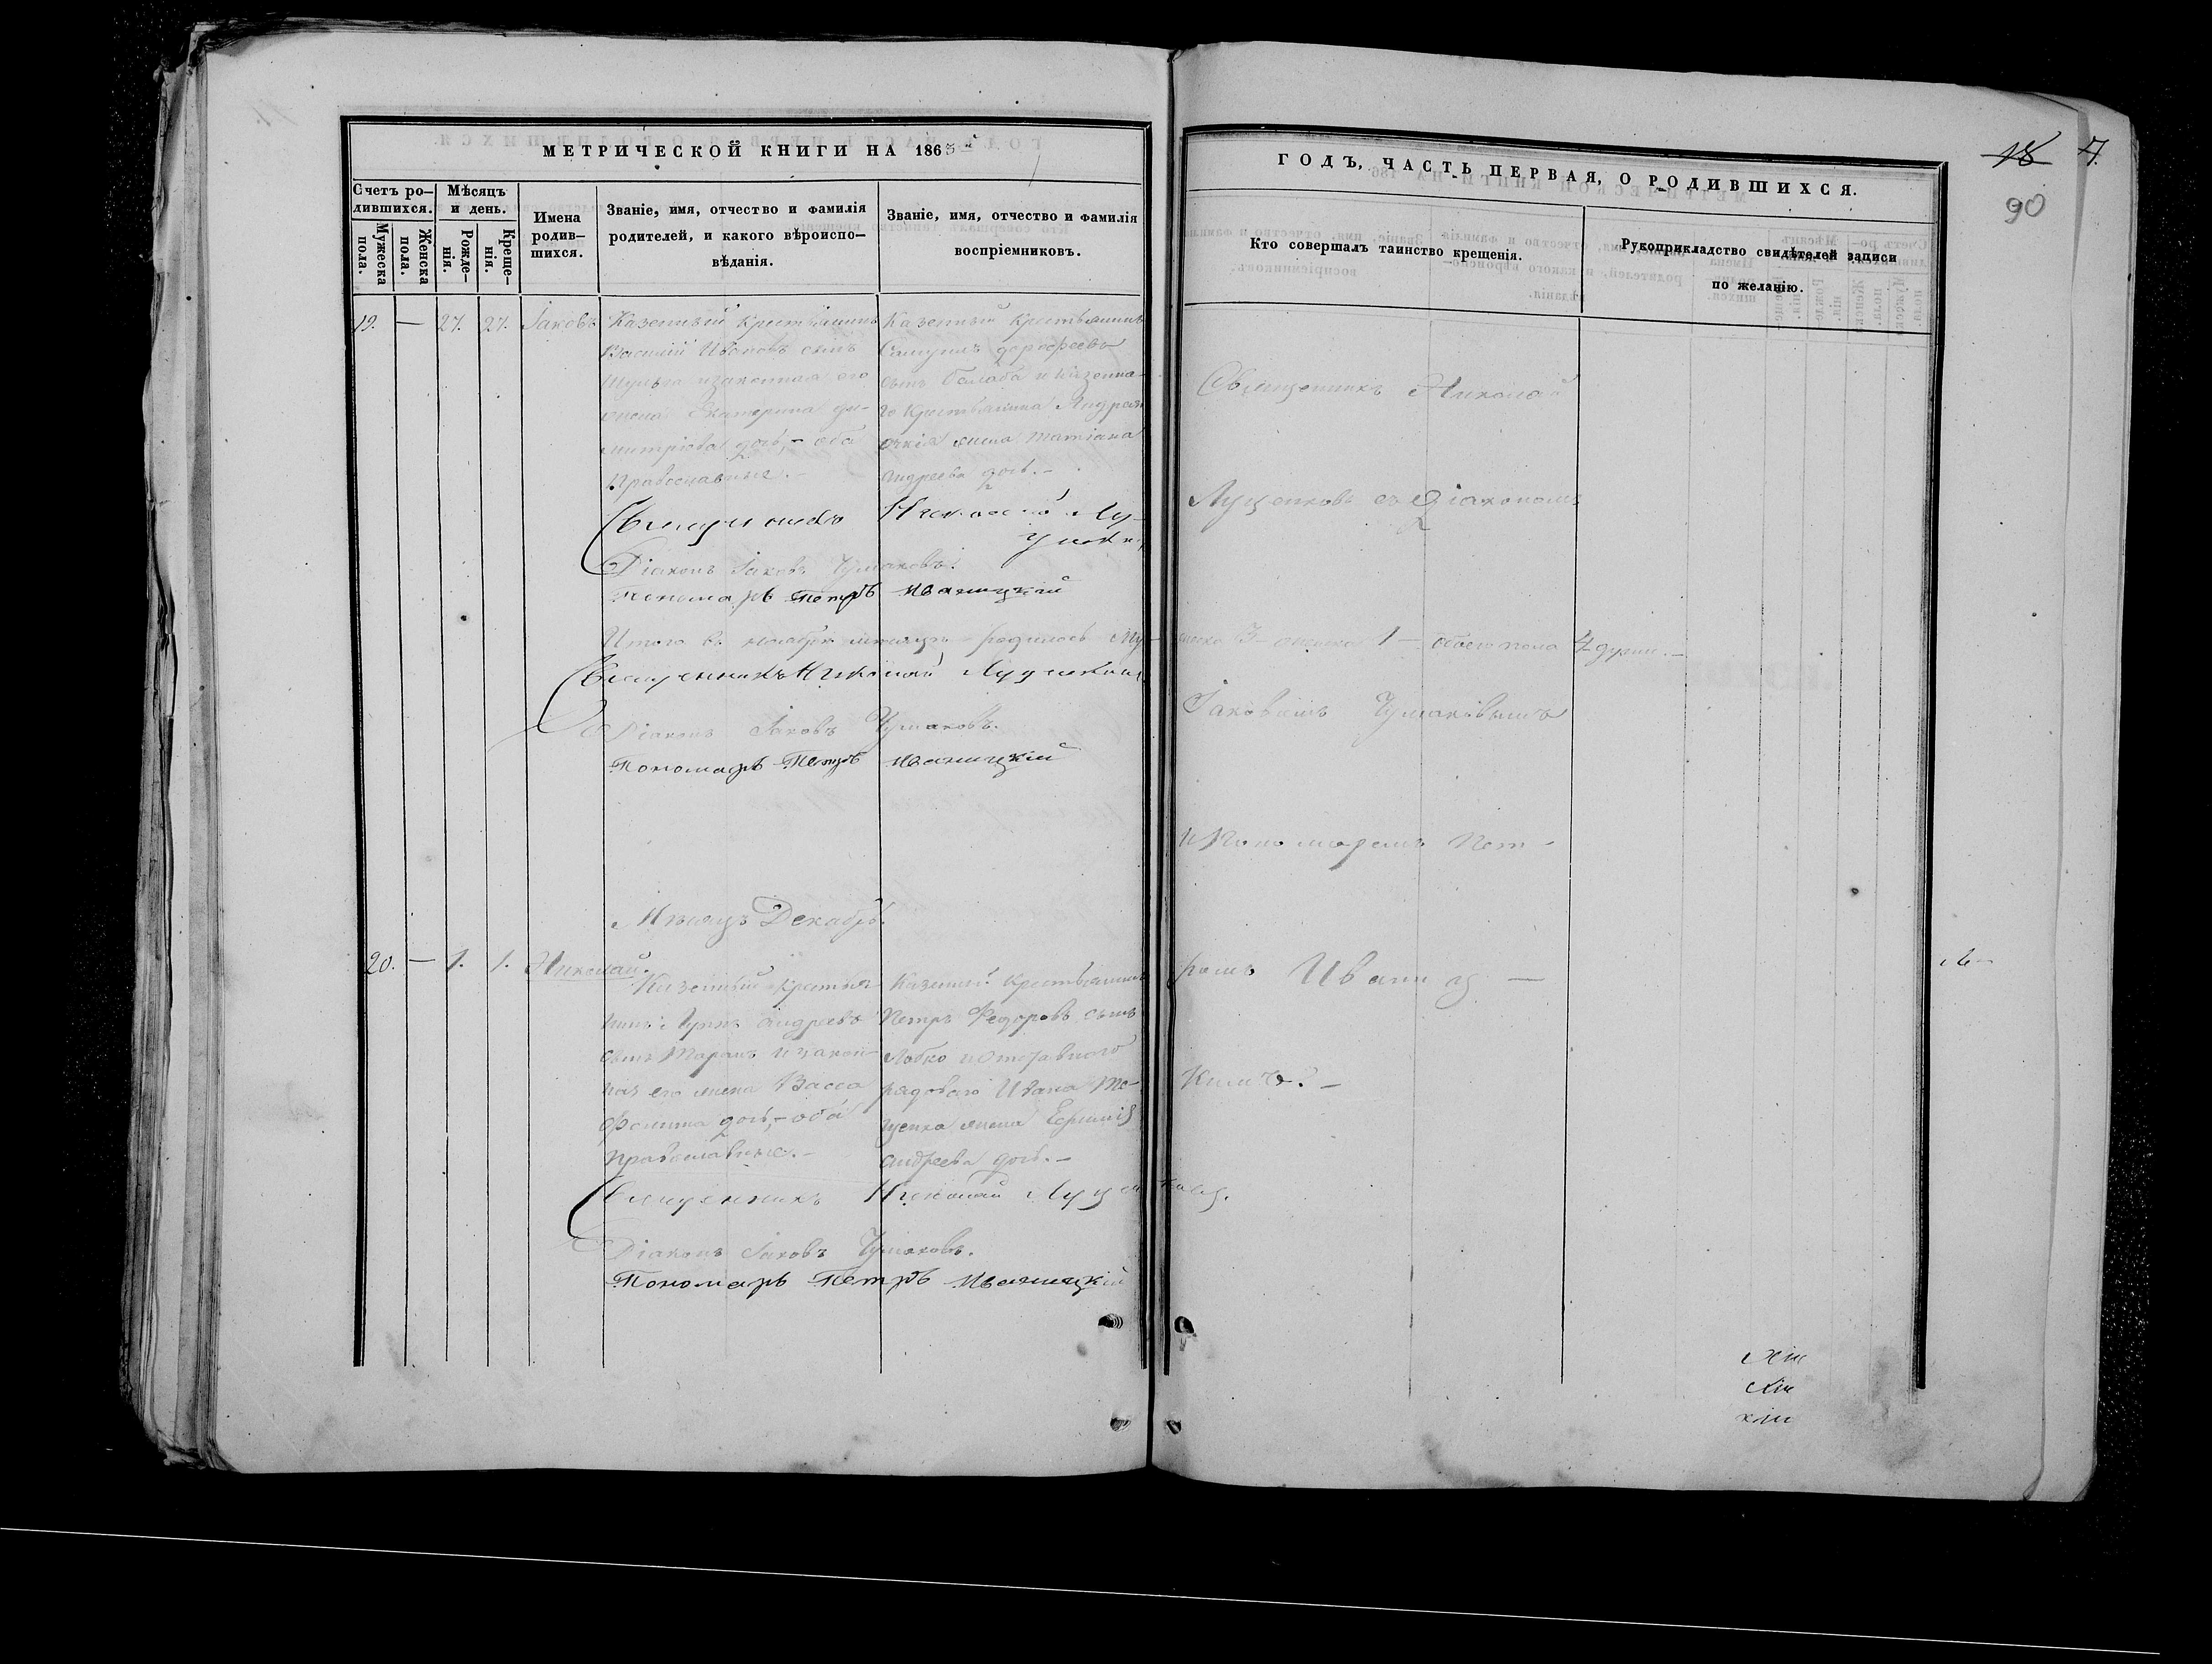 МЕТРИЧЕСКОЙ КНИГИ НА 1865й
Счетъ ро-
дившихся.
Мужеска
пола.
Женска
пола.
Мѣсяцъ
и день.
Рожде-
нія.
Креще-
нія.
Имена
родив-
шихся.
Званіе, имя, отчество и фамилія
родителей, и какого вѣроиспо-
вѣданія.
Званіе, имя, отчество и фамилія
воспріемниковъ.
19. — 27. 27. Іаковъ
Казенный Крестьянинъ
Василій Ивановъ сынъ
Шульга изаконная его
жена Екатерина ди-
митріева дочь,- оба
Православные.-
Казенный Крестьянинъ
Самуилъ дорофеевъ
сынъ балаба и Казенна-
го Крестьянина Андрея
жена татіана
андреева дочь.-
Священникъ Николай Лу-
Діаконъ Іаковъ Чумаковъ.
Пономарь Петръ Иваницкій
Итого въ ноябрѣ мѣсяцѣ родилось Му-
Священникъ Николай Луценковъ
Діаконъ Іаковъ Чумаковъ.
Пономарь Петръ Иваницкій
Мѣсяцъ Декабрь.
20. — 1. 1. Николай.
Казенный Крестья-
нинъ андреевъ
сынъ Таранъ и закон-
ная его жена Васса
Фомина дочь,- оба
православные.-
Казенный Крестьянинъ
Петръ Федоровъ сынъ
Лобко и отставного
рядового Ивана
жена
андреева дочь.-
Священникъ Николай Луценковъ.
Діаконъ Іаковъ Чумаковъ.
Пономарь Петръ Иваницкій
ГОДЪ, ЧАСТЬ ПЕРВАЯ, О РОДИВШИХСЯ.
18 7.
90
Кто совершалъ таинство крещенія.
Рукоприкладство свидѣтелей записи
по желанію.
Священникъ Николай
Луценковъ съ Діакономъ
жеска 3- женска 1- обоего пола 4 души.-
Іаковомъ Чумаковымъ
и Пономаремъ Пет-
ромъ Иваниц —
кимъ.-